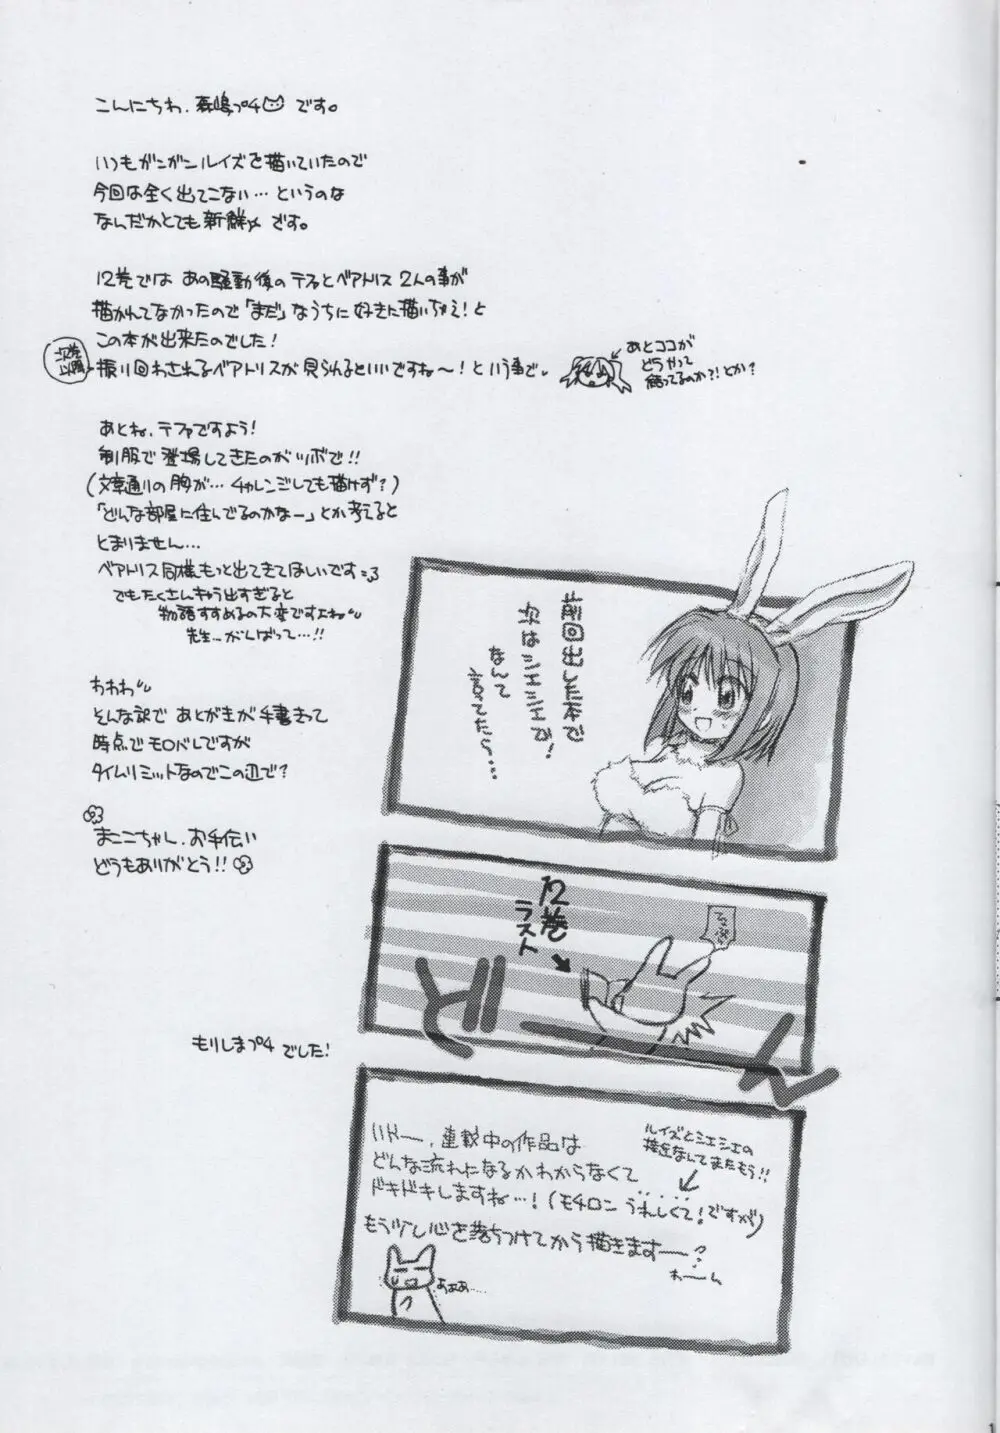 こんにちわ、森嶋プチです。
いつもガンガンルイズを描いていたので
今回は全く出てこない…というのな
なんだかとても新鮮〆です。
12巻では あの騒動後のテファとベアトリス 2人の事が
描かれてなかったので「まだ」なうちに好きに描いちゃえ!と
この本が出来たのでした!
次巻
以降
振り回わされるベアトリスが見られるといいですね〜!という事で。
あとココが
どうやって
結ってるのか?!とか?
あとね、テファですよう!
制服で登場してきたのがツボで!!
(文章通りの胸が…チャレンジしても描けず?)
「どんな部屋に住んでるのかなー」とか考えると
とまりません…
ベアトリス同様もっと出てきてほしいです
でもたくさんキャラ出すぎると
物語すすめるの大変ですよね
先生…がんばって…!!
わわわ
そんな訳で あとがきが手書きって
時点でモロバレですが
タイムリミットなのでこの辺で?
まここちゃん、お手伝い
どうもありがとう!!
もりしまプチ でした!
前回出した本で
次はシエシエで!
なんて
言てたら…
12巻
ラスト
ドーン
ハドー、連載中の作品は
どんな流れになるかわからなくて
ドキドキしますね…!(モチロン うれしくて!ですが)
ルイズとシエシエの
接近なんてまたもう!!
もう少し心を落ちつけてから描きますー?
わーん
あぁぁ……